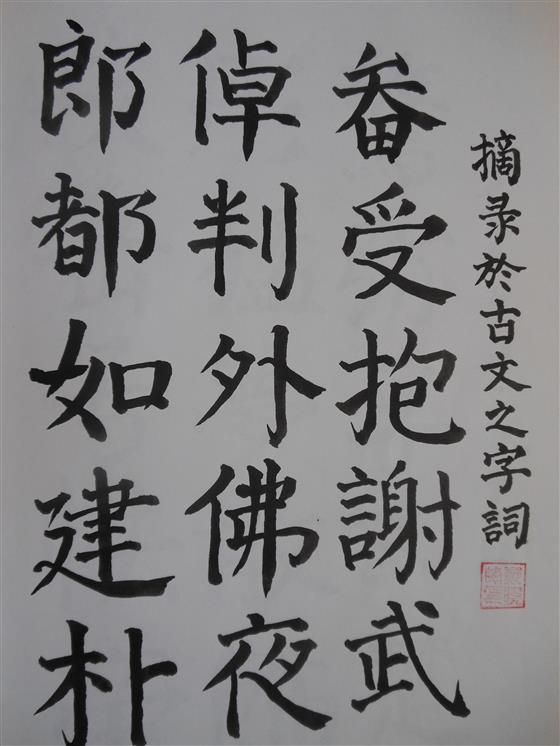 摘录於古文之字詞
畚受抱謝武
倬判外佛夜
郎都如建朴